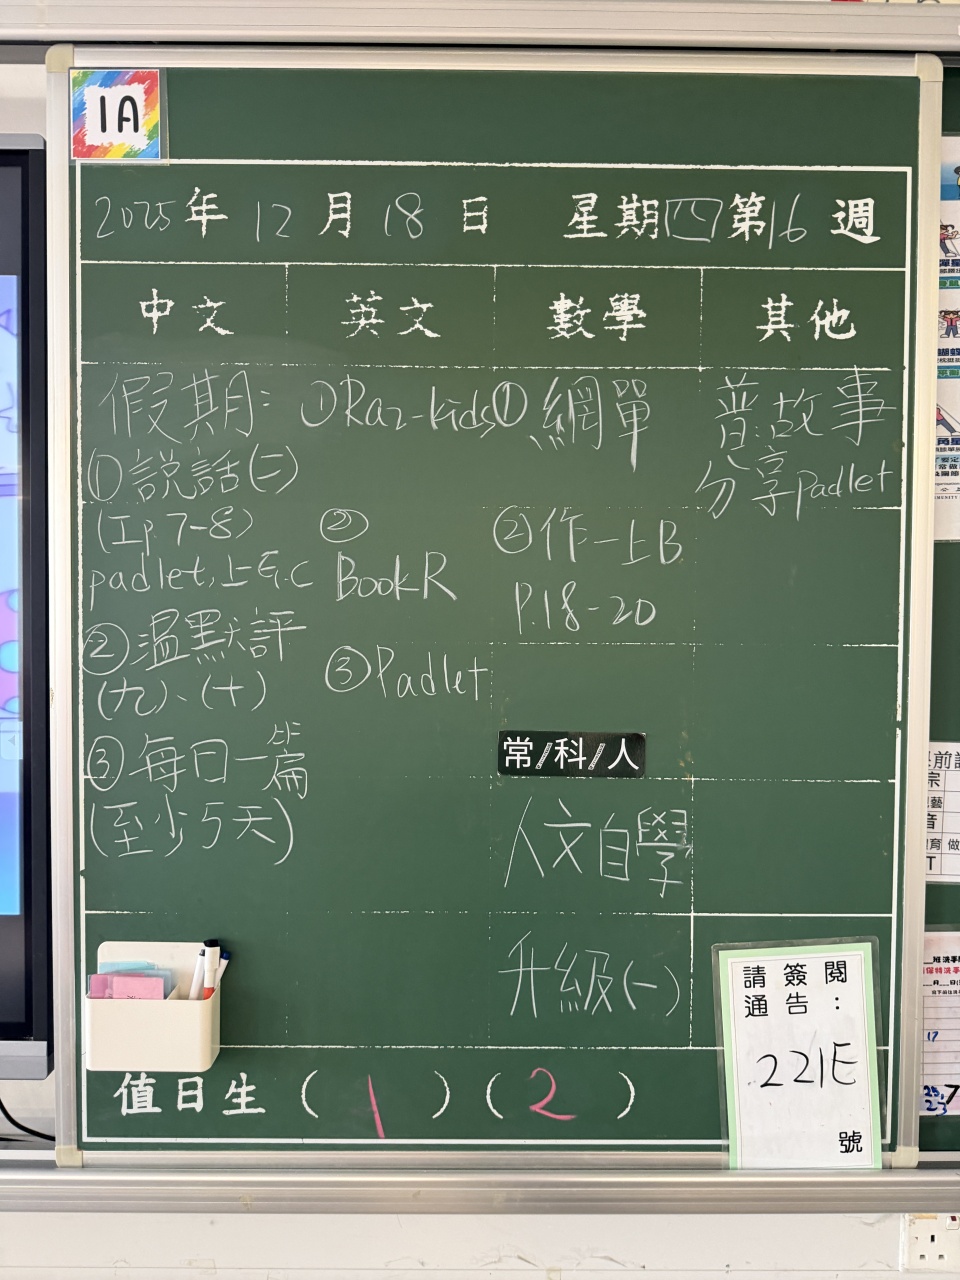 1A
2025年12月18日 星期四第16週
中文 英文 數學 其他
假期:
①説話(二)
(工p.7-8)
padlet,上
②溫默評
(九)、(十)
③每日一篇
(至少5天)
①Raz-kids
②
BookR
③Padlet
①網單
②作一上B
P.18-20
常/科/人
人文自學
升級(一)
普:故事
分享padlet
請簽閱
通告:
221E
號
值日生(1)(2)